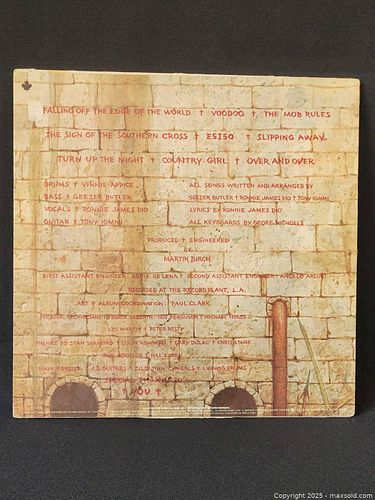 FALLING OFF THE EDGE OF THE WORLD † VOODOO † THE MOB RULES
THE SIGN OF THE SOUTHERN CROSS † E5150 † SLIPPING AWAY
TURN UP THE NIGHT † COUNTRY GIRL † OVER AND OVER
DRUMS † VINNIE APPICE
BASS † GEEZER BUTLER
VOCALS † RONNIE JAMES DIO
GUITAR † TONY IOMMI
ALL SONGS WRITTEN AND ARRANGED BY
GEEZER BUTLER † RONNIE JAMES DIO † TONY IOMMI
LYRICS BY RONNIE JAMES DIO
ALL KEYBOARDS BY GEOFF NICHOLLS
PRODUCED † ENGINEERED
BY
MARTIN BIRCH
FIRST ASSISTANT ENGINEER: EDDIE DE LENA † SECOND ASSISTANT ENGINEER: ANGELO ARCURI
RECORDED AT THE RECORD PLANT, L.A.
ART † ALBUM COORDINATION: PAUL CLARK
PERSONAL TECHNICIANS TO BLACK SABBATH: IAN FERGUSON † MICHAEL
LES MARTIN † PETER RESTY
THANKS TO STAN DIAMOND † COLIN NEWMAN † GARY DULAC † CHRIS STONE
PHIL † HAL
MARK FORSTER † GUITARS † ZILDJIAN CYMBALS † LUDWIG DRUMS
SPECIAL THANKS TO
† YOU †
Copyright 2025 - maxsold.com